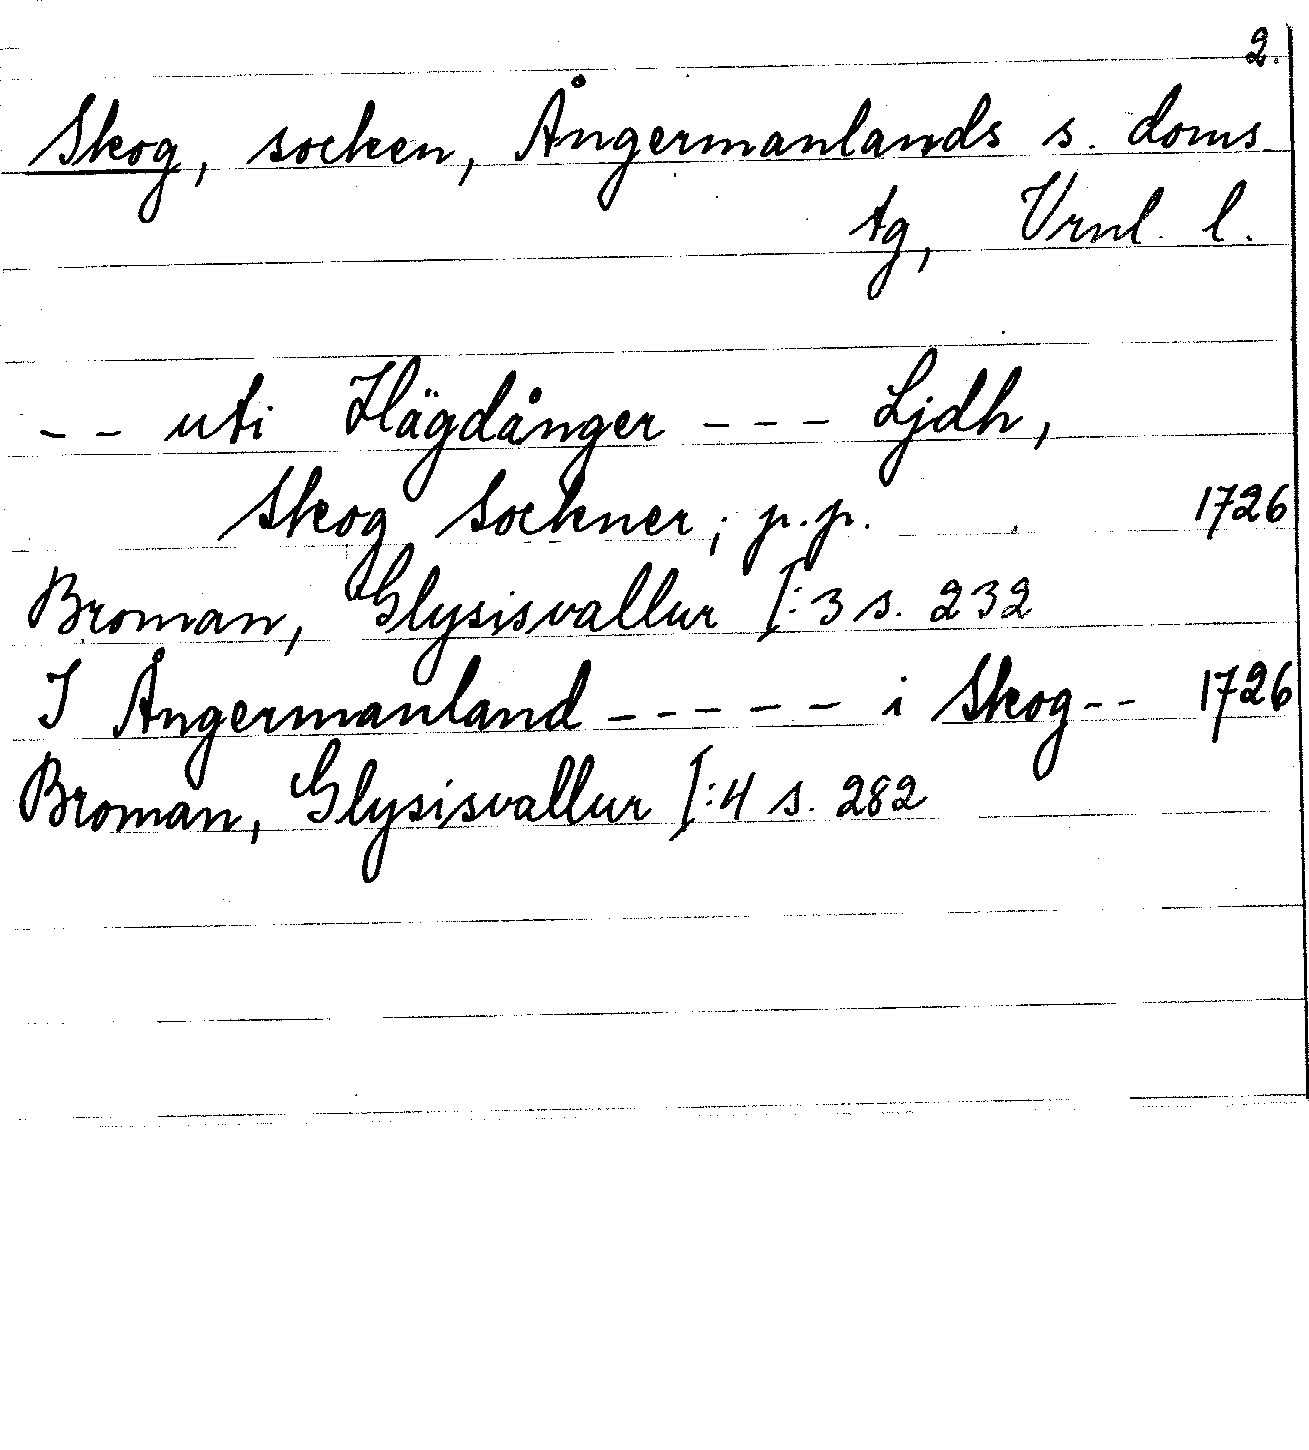 2.
Skog, socken, Ångermanlands s. doms
tg, Vrnl. l.
-- uti Hägdånger --- Ljdh,
Skog Sockner; p.p. 1726
Broman, Glysisvallur I:3 s. 232
I Ångermanland ----- i Skog-- 1726
Broman, Glysisvallur I:4 s. 282